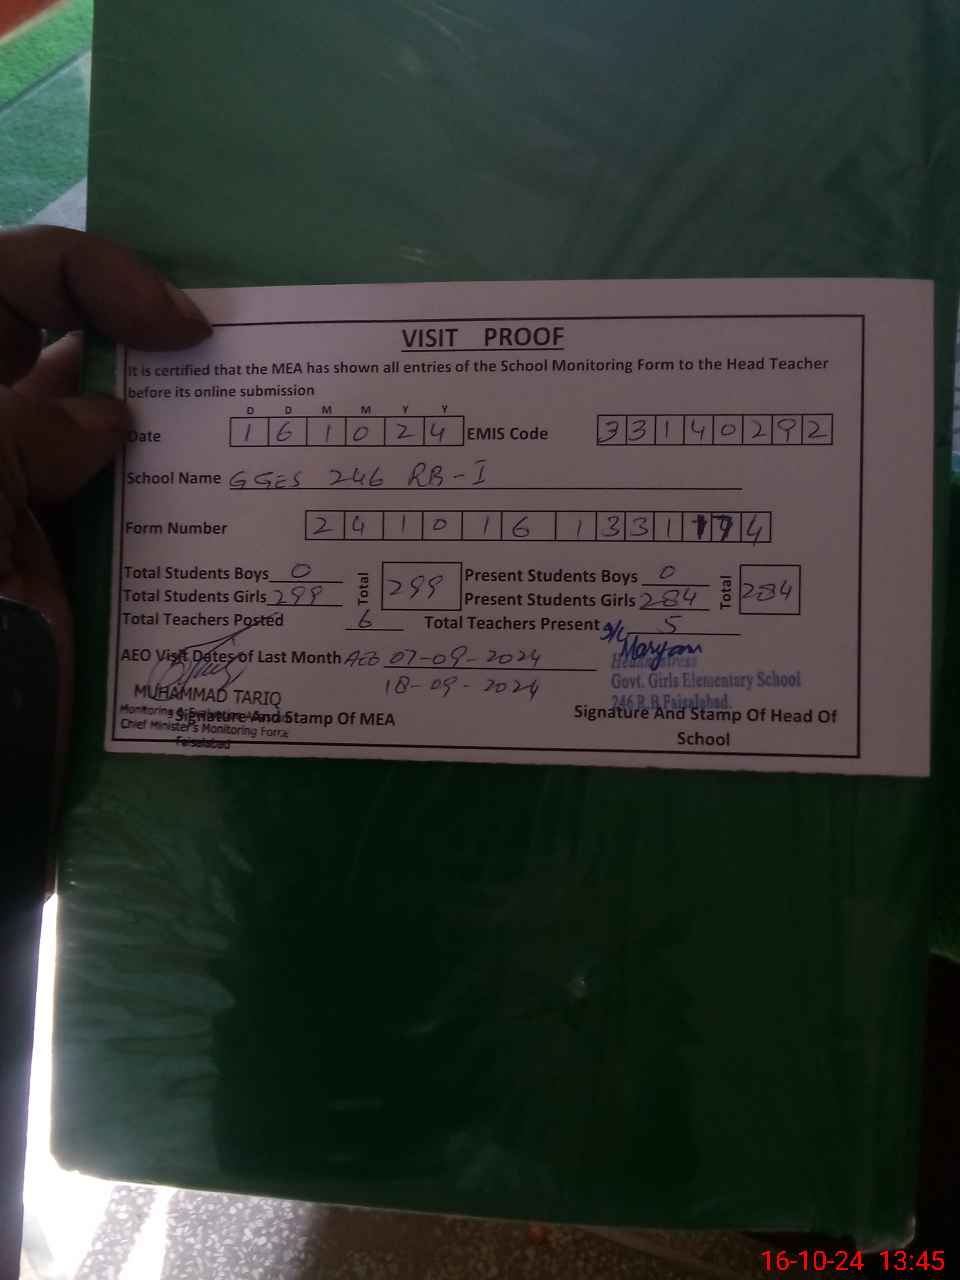 VISIT PROOF
It is certified that the MEA has shown all entries of the School Monitoring Form to the Head Teacher
before its online submission
D D M M Y Y
Date 1 6 1 0 2 4 EMIS Code 3 3 1 4 0 2 9 2
School Name GGES 246 RB-I
Form Number 2 4 1 0 1 6 1 3 3 1 1 9 4
Total Students Boys 0 Total 299 Present Students Boys 0 Total 284
Total Students Girls 299 Present Students Girls 284
Total Teachers Posted 6 Total Teachers Present 5
AEO Visit Dates of Last Month AEO 07-09-2024
18-09-2024
Maryam
Headmistress
Govt. Girls Elementary School
246 R.B Faisalabad.
MUHAMMAD TARIQ
Monitoring & Evaluation
Chief Minister's Monitoring Force
Faisalabad
Signature And Stamp Of MEA
Signature And Stamp Of Head Of
School
16-10-24 13:45